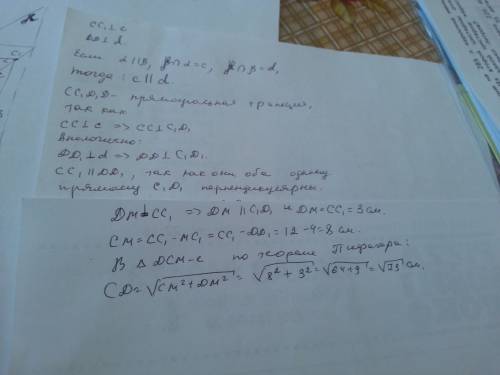 CC₁⊥c
DD₁⊥d
Если α∥β, γ∩α=c, γ∩β=d,
тогда: c∥d.
CC₁D₁D - прямоугольная трапеция,
так как
CC⊥c => CC⊥C₁D₁
Аналогично:
DD₁⊥d => DD⊥C₁D₁.
CC₁∥DD₁, так как они оба одному
прямому C₁D₁ перпендикулярны.
DM⊥CC₁ => DM∥C₁D₁ и DM=CC₁=3 см.
CM=CC₁-MC₁=CC₁-DD₁=12-4=8 см.
В Δ DCM-е по теореме Пифагора:
CD=√CM²+DM² = √8²+3² = √64+9 = √73 см.